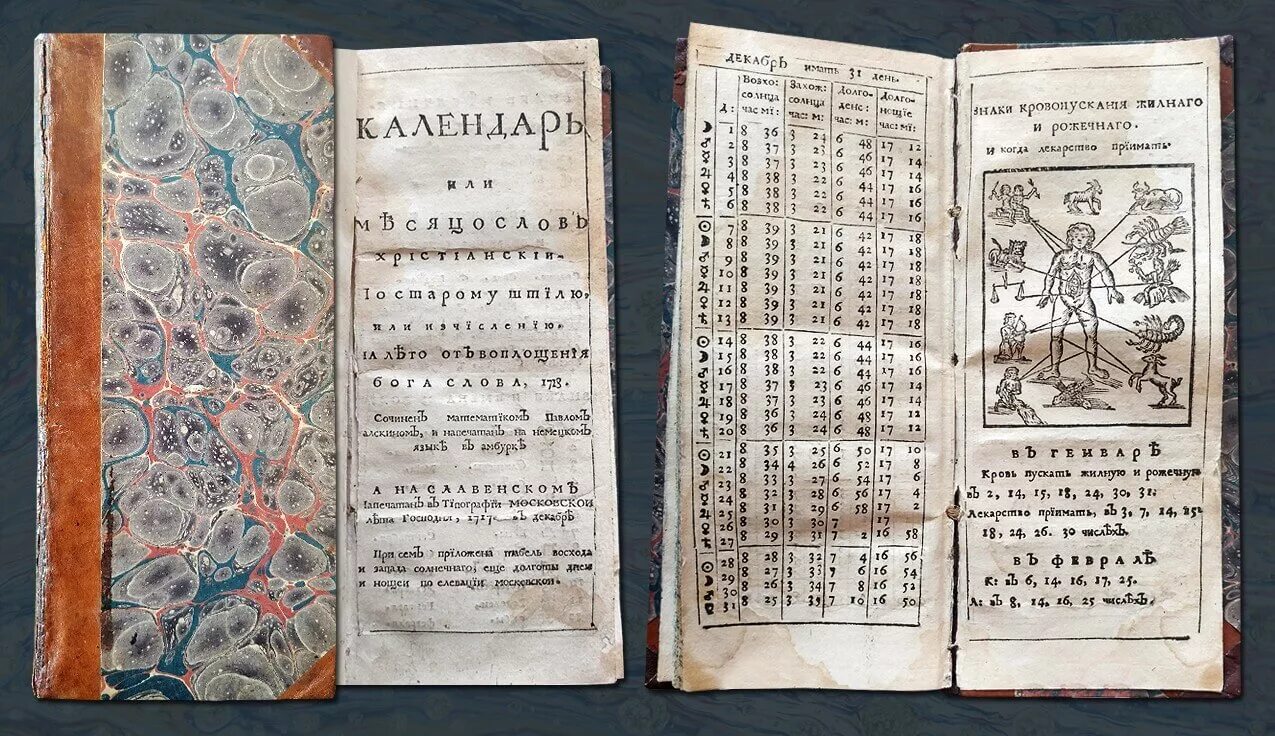 КАЛЕНДАРЬ
или
МѢСЯЦОСЛОВЪ
ХРІСТІАНСКІИ.
По старому штїлю,
или изчїсленїю.
на лѣто отъ воплощенїя
бога слова, 1718.
Сочиненъ математїкомъ Павломъ
алскиномъ, и напечатанъ на немецкомъ
языкѣ въ амбуркѣ
А НА СЛАВЕНСКОМЪ
Напечатанъ въ Тїпографїи МОСКОВСКОЙ
лѣта Господня, 1717. въ декабрѣ
При семъ прїложена табель восхода
и запада солнечнаго, еще долготы днеи
и нощеи по елевацїи московскои.
ДЕКАБРЬ имать 31 день.
Д: Возхо: солнца час мї: Захож: солнца час: м: Долго- денс: час: м: Долго- нощїе час: мї:
☽ 1 8 36 3 24 6 48 17 12
♂ 2 8 37 3 23 6 46 17 14
☿ 3 8 37 3 23 6 46 17 14
♃ 4 8 38 3 22 6 44 17 16
♀ 5 8 38 3 22 6 44 17 16
♄ 6 8 38 3 22 6 44 17 16
☉ 7 8 39 3 21 6 42 17 18
☽ 8 8 39 3 21 6 42 17 18
♂ 9 8 39 3 21 6 42 17 18
☿ 10 8 39 3 21 6 42 17 18
♃ 11 8 39 3 21 6 42 17 18
♀ 12 8 39 3 21 6 42 17 18
♄ 13 8 39 3 21 6 42 17 18
☉ 14 8 38 3 22 6 44 17 16
☽ 15 8 38 3 22 6 44 17 16
♂ 16 8 38 3 22 6 44 17 16
☿ 17 8 37 3 23 6 46 17 14
♃ 18 8 37 3 23 6 46 17 14
♀ 19 8 36 3 24 6 48 17 12
♄ 20 8 36 3 24 6 48 17 12
☉ 21 8 35 3 25 6 50 17 10
☽ 22 8 34 4 26 6 52 17 8
♂ 23 8 33 3 27 6 54 17 6
☿ 24 8 32 3 28 6 56 17 4
♃ 25 8 31 3 29 6 58 17 2
♀ 26 8 30 3 30 7 17
♄ 27 8 29 3 31 7 2 16 58
☉ 28 8 28 3 32 7 4 16 56
☽ 29 8 27 3 33 7 6 16 54
♂ 30 8 26 3 34 7 8 16 52
☿ 31 8 25 3 35 7 10 16 50
ЗНАКИ КРОВОПУСКАНІЯ ЖИЛНАГО
И РОЖЕЧНАГО.
И когда лекарство прїимать.
ВЪ ГЕНВАРѢ
Кровь пускать жилную и рожечную
въ 2, 14, 15, 18, 24, 30, 31.
Лекарство прїимать, въ 3, 7, 14, 15
18, 24, 26. 30 числѣхъ.
ВЪ ФЕВРАЛѢ
К: въ 6, 14. 16, 17, 25.
Л: въ 8, 14, 16, 25 числѣхъ.